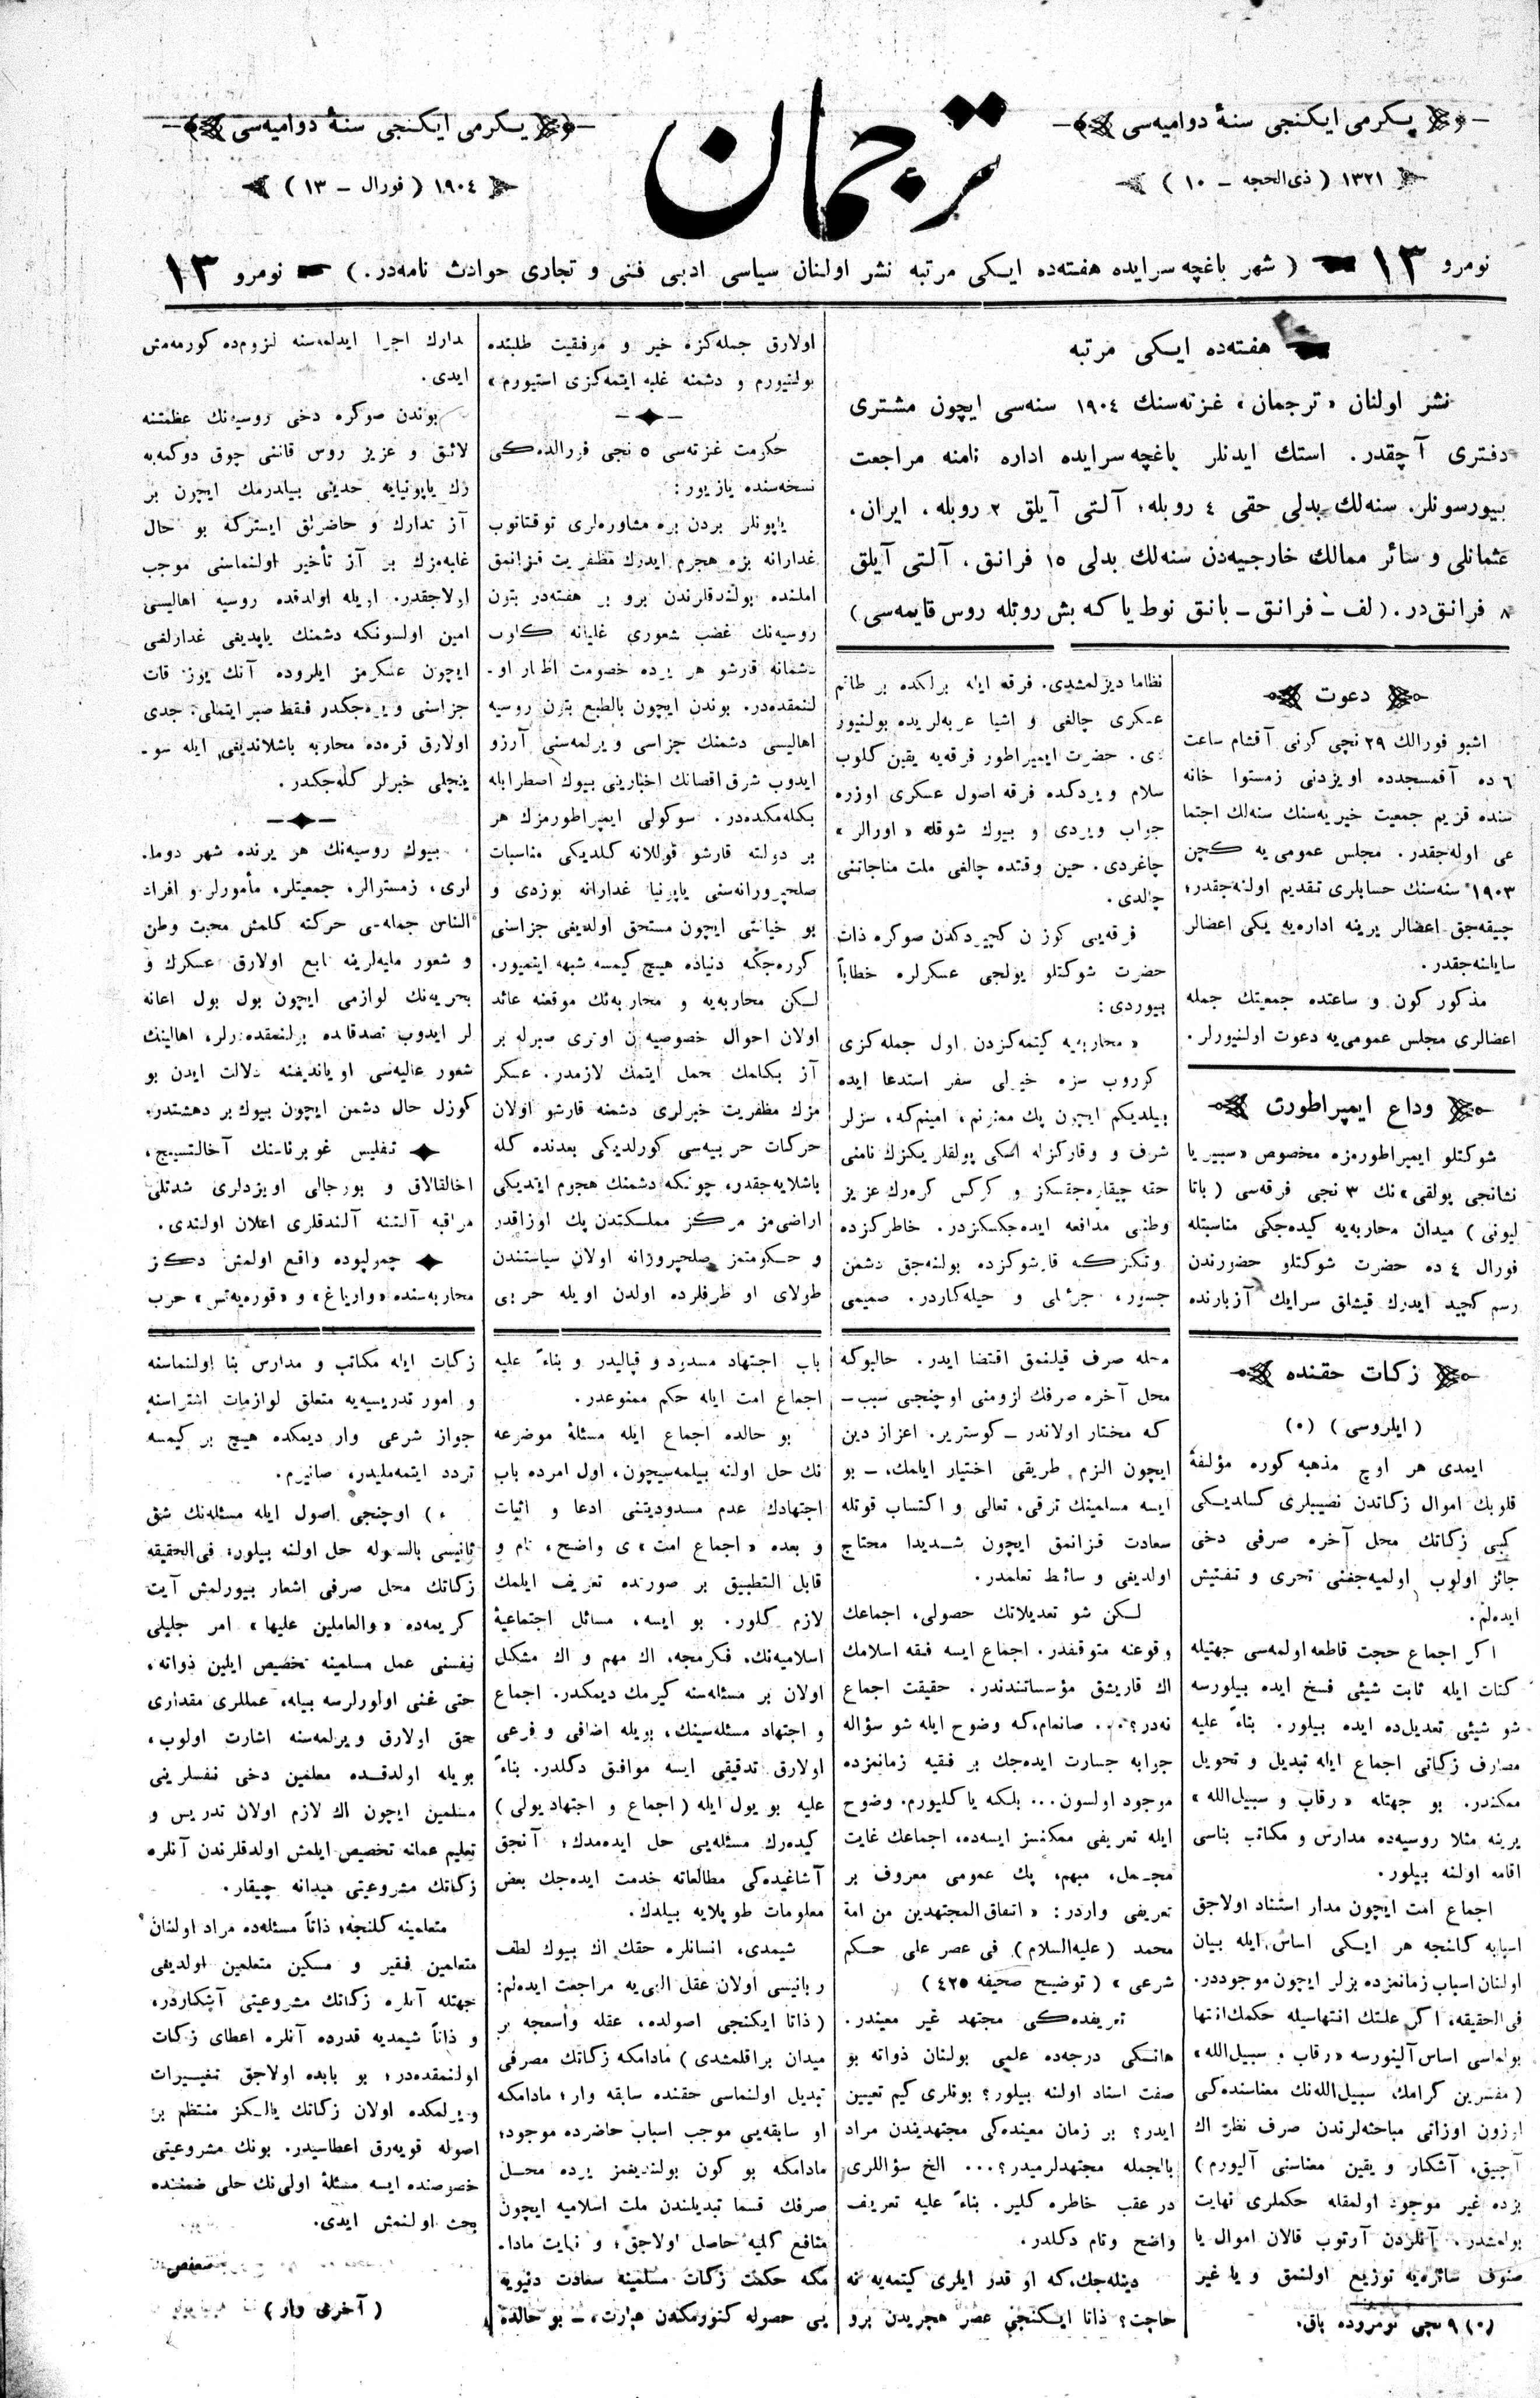 یكرمی ایكنجی سنۀ دوامیه‌سی
١٣٢١ ( ذی‌الحجه ـ ١٠ )
ترجمان
یكرمی ایكنجی سنۀ دوامیه‌سی
١٩٠٤ ( فورال ـ ١٣ )
نومرو ١٣ ( شهر باغچه سرایده هفته‌ده ایكی مرتبه نشر اولنان سیاسی ادبی فنی و تجاری حوادث نامه‌در . ) نومرو ١٣
هفته‌ده ایكی مرتبه
نشر اولنان « ترجمان » غزته‌سنك ١٩٠٤ سنه‌سی ایچون مشتری
دفتری آچقدر . استك ایدنلر باغچه سرایده اداره نامنه مراجعت
بیورسونلر . سنه‌لك بدلی حقی ٤ روبله ؛ آلتی آیلق ٢ روبله ، ایران ،
عثمانلی و سائر ممالك خارجیه‌دن سنه‌لك بدلی ١٥ فرانق ، آلتی آیلق
٨ فرانق‌در . ( لف ـ فرانق ـ بانق نوط یا كه بش روبله روس قایمه‌سی )
دعوت
اشبو فورالك ٢٩ نجی كونی آقشام ساعت
٦ ده آقمسجدده اویزدنی زمستوا خانه
سنده قریم جمعیت خیریه‌سنك سنه‌لك اجتما
عی اوله‌جقدر . مجلس عمومی یه كچن
١٩٠٣ سنه‌سنك حسابلری تقدیم اولنه‌جقدر ؛
چیقه‌جق اعضالر یرینه اداره‌یه یكی اعضالر
سایلنه‌جقدر .
مذكور كون و ساعتده جمعیتك جمله
اعضالری مجلس عمومی‌یه دعوت اولنیورلر .
وداع ایمپراطوری
شوكتلو ایمپراطورمزه مخصوص « سبیریا
نشانجی پولقی » نك ٣ نجی فرقه‌سی ( باتا
لیونی ) میدان محاربه‌یه كیده‌جكی مناسبتله
فورال ٤ ده حضرت شوكتلو حضورندن
رسم كچید ایدرك قیشلق سرایك آزبارنده
نظاما دیزلمشدی . فرقه ایله برلكده بر طاقم
عسكری چالغی و اشیا عربه‌لریده بولنیور
دی . حضرت ایمپراطور فرقه‌یه یقین كلوب
سلام ویردكده فرقه اصول عسكری اوزره
جواب ویردی و بیوك شوقله « اورالر »
چاغردی . حین وقتده چالغی ملت مناجاتنی
چالدی .
فرقه‌یی كوزدن كچیردكدن صوكره ذات
حضرت شوكتلو یولجی عسكرلره خطاباً
بیوردی :
« محاربه‌یه كیتمه‌كزدن اول جمله‌كزی
كوروب سزه خیرلی سفر استدعا ایده
بیلدیكم ایچون پك ممنونم ، امینم‌كه ، سزلر
شرف و وقاركزله اسكی پولقلریكزك نامنی
حقه چیقاره‌جقسكز و كركس كره‌رك عزیز
وطنی مدافعه ایده‌جكسكزدر . خاطركزده
وتكزكه قارشوكزده بولنه‌جق دشمن
جسور ، جرئتلی و حیله‌كاردر . صمیمی
اولارق جمله‌كزه خیر و موفقیت طلبنده
بولنیورم و دشمنه غلبه ایتمه‌كزی استیورم »
حكومت غزته‌سی ٥ نجی فورالده‌كی
نسخه‌سنده یازیور :
یاپونلر بردن بره مشاوره‌لری توقتاتوب
غدارانه بزه هجوم ایدرك مظفریت قزانمق
املنده بولندقلرندن برو بر هفته‌در بتون
روسیه‌نك غضب شعوری غلیانه كلوب
دشمانه قارشو هر یرده خصومت اظهار او ـ
لنمقده‌در . بوندن ایچون بالطبع بتون روسیه
اهالیسی دشمنك جزاسی ویرلمه‌سنی آرزو
ایدوب شرق اقصانك اخبارینی بیوك اصطرابله
بكله‌مكده‌در . سوكولی ایمپراطورمزك هر
بر دولته قارشو قوللانه كلدیكی مناسبات
صلحپرورانه‌سنی یاپونیا غدارانه بوزدی و
بو خیانتی ایچون مستحق اولدیغی جزاسنی
كوره‌جكنه دنیاده هیچ كیمسه شبهه ایتمیور .
لكن محاربه‌یه و محاربه‌نك موقعنه عائد
اولان احوال خصوصیه‌دن اوتری صبرله بر
آز بكلمك حمل ایتمك لازمدر . عسكر
مزك مظفریت خبرلری دشمنه قارشو اولان
حركات حربیه‌سی كورلدیكی بعدنده كله
باشلایه‌جقدر ، چونكه دشمنك هجوم ایتدیكی
اراضی‌مز مركز مملكتدن پك اوزاقدر
و حكومتمز صلحپرورانه اولان سیاستندن
طولای او طرفلرده اولدن اویله حربی
تدارك اجرا ایدلمه‌سنه لزومده كورمه‌مش
ایدی .
بوندن صوكره دخی روسیه‌نك عظمتنه
لائق و عزیز روس قاننی چوق دوكمه‌یه
رك یاپونیایه حدینی بیلدرمك ایچون بر
آز تدارك و حاضرلق ایستركه بو حال
غلبه‌مزك بر آز تأخیر اولنماسنی موجب
اولاجقدر . اویله اولدقده روسیه اهالیسی
امین اولسونكه دشمنك یاپدیغی غدارلغی
ایچون عسكرمز ایلروده آنك یوز قات
جزاسنی ویره‌جكدر فقط صبر ایتملی . جدی
اولارق قره‌ده محاربه باشلاندیغی ایله سو ـ
ینچلی خبرلر كله‌جكدر .
بیوك روسیه‌نك هر یرنده شهر دوما ـ
لری ، زمستوالر ، جمعیتلر ، مأمورلر و افراد
الناس جمله‌سی حركته كلمش محبت وطن
و شعور ملیه‌لرینه تابع اولارق عسكرك و
بحریه‌نك لوازمی ایچون بول بول اعانه
لر ایدوب تصدقاتده بولنمقده‌درلر ، اهالینك
شعور عالیه‌سی اویاندیغنه دلالت ایدن بو
كوزل حال دشمن ایچون بیوك بر دهشتدر .
تفلیس غوبرناسنك آخالتسیخ ،
اخالقالاق و بورجالی اویزدلری شدتلی
مراقبه آلتنه آلندقلری اعلان اولندی .
چمولپوده واقع اولمش دكز
محاربه‌سنده « واریاغ » و « قوره‌یه‌تس » حرب
زكات حقنده
( ایلروسی ) (٥)
ایمدی هر اوچ مذهبه كوره مؤلفۀ
قلوبك اموال زكاتدن نصیبلری كسلدیكی
كبی زكاتك محل آخره صرفی دخی
جائز اولوب اولمیه‌جغنی تحری و تفتیش
ایده‌لم .
اكر اجماع حجت قاطعه اولمه‌سی جهتیله
كتاب ایله ثابت شیئی فسخ ایده بیلورسه
شو شیئی تعدیل‌ده ایده بیلور . بناءً علیه
مصارف زكاتی اجماع ایله تبدیل و تحویل
ممكندر . بو جهتله « رقاب و سبیل‌الله »
یرینه مثلا روسیه‌ده مدارس و مكاتب بناسی
اقامه اولنه بیلور .
اجماع امت ایچون مدار استناد اولاجق
اسبابه كلنجه هر ایكی اساس ایله بیان
اولنان اسباب زمانمزده بزلر ایچون موجوددر .
فی‌الحقیقه ، اكر علتك انتهاسیله حكمك انتها
بولماسی اساس آلینورسه « رقاب و سبیل‌الله »
( مفسرین كرامك سبیل‌الله‌نك معناسنده‌كی
اوزون اوزاتی مباحثه‌لرندن صرف نظر اك
آچیق ، آشكار و یقین معناسنی آلیورم )
بزده غیر موجود اولمقله حكملری نهایت
بولمشدر . آنلردن آرتوب قالان اموال یا
صنوف سائره‌یه توزیع اولنمق و یا غیر
(٥) ٩ نجی نومروده باق .
محله صرف قیلنمق اقتضا ایدر . حالبوكه
محل آخره صرفك لزومنی اوچنجی سبب ـ
كه مختار اولاندر ـ كوستریر . اعزاز دین
ایچون الزم طریقی اختیار ایلمك ، ـ بو
ایسه مسلمینك ترقی ، تعالی و اكتساب قوتله
سعادت قزانمق ایچون شدیدا محتاج
اولدیغی وسائط تعلمدر .
لكن شو تعدیلاتك حصولی ، اجماعك
وقوعنه متوقفدر . اجماع ایسه فقه اسلامك
اك قاریشق مؤسساتندندر . حقیقت اجماع
نه‌در ؟ ... صانمام‌كه وضوح ایله شو سؤاله
جوابه جسارت ایده‌جك بر فقیه زمانمزده
موجود اولسون ... بلكه یا كلیورم . وضوح
ایله تعریفی ممكنسز ایسه‌ده ، اجماعك غایت
مجمل ، مبهم ، پك عمومی معروف بر
تعریفی واردر : « اتفاق المجتهدین من امة
محمد ( علیه‌السلام ) فی عصر علی حكم
شرعی » ( توضیح صحیفه ٤٢٥ )
تعریفده‌كی مجتهد غیر معیندر .
هانكی درجه‌ده علمی بولنان ذواته بو
صفت اسناد اولنه بیلور ؟ بونلری كیم تعیین
ایدر ؟ بر زمان معینده‌كی مجتهدیندن مراد
بالجمله مجتهدلرمیدر ؟ ... الخ سؤاللری
درعقب خاطره كلیر . بناءً علیه تعریف
واضح وتام دكلدر .
دینله‌جك ، كه او قدر ایلری كیتمه‌یه نه
حاجت ؟ ذاتا ایكنجی عصر هجریدن برو
باب اجتهاد مسدود و قپالیدر و بناءً علیه
اجماع امت ایله حكم ممنوعدر .
بو حالده اجماع ایله مسئلۀ موضوعه
نك حل اولنه بیلمه‌سیچون ، اول امرده باب
اجتهادك عدم مسدودیتنی ادعا و اثبات
و بعده « اجماع امت » ی واضح ، تام و
قابل التطبیق بر صورتده تعریف ایلمك
لازم كلور . بو ایسه ، مسائل اجتماعیۀ
اسلامیه‌نك ، فكرمجه ، اك مهم و اك مشكل
اولان بر مسئله‌سنه كیرمك دیمكدر . اجماع
و اجتهاد مسئله‌سینك ، بویله اضافی و فرعی
اولارق تدقیقی ایسه موافق دكلدر . بناءً
علیه بو یول ایله ( اجماع و اجتهاد یولی )
كیده‌رك مسئله‌یی حل ایده‌مدك ؛ آنجق
آشاغیده‌كی مطالعاته خدمت ایده‌جك بعض
معلومات طوپلایه بیلدك .
شیمدی ، انسانلره حقك اك بیوك لطف
ربانیسی اولان عقل الهی‌یه مراجعت ایده‌لم :
( ذاتا ایكنجی اصولده ، عقله واسعجه بر
میدان براقلمشدی ) مادامكه زكاتك مصرفی
تبدیل اولنماسی حقنده سابقه وار ؛ مادامكه
او سابقه‌یی موجب اسباب حاضرده موجود ؛
مادامكه بو كون بولندیغمز یرده محل
صرفك قسما تبدیلندن ملت اسلامیه ایچون
منافع كلیه حاصل اولاجق ؛ و نهایت مادا ـ
مكه حكمت زكات مسلمینه سعادت دنیویه
یی حصوله كتورمكدن عبارت ، ـ بو حالده
زكات ایله مكاتب و مدارس بنا اولنماسنه
و امور تدریسیه‌یه متعلق لوازمات اشتراسنه
جواز شرعی وار دیمكده هیچ بر كیمسه
تردد ایتمه‌ملیدر ، صانیرم .
) اوچنجی اصول ایله مسئله‌نك شق
ثانیسی بالسهوله حل اولنه بیلور : فی‌الحقیقه
زكاتك محل صرفی اشعار بیورلمش آیت
كریمه‌ده « والعاملین علیها » امر جلیلی
نیفسنی عمل مسلمینه تخصیص ایلین ذواته ،
حتی غنی اولورلرسه بیله ، عمللری مقداری
حق اولارق ویرلمه‌سنه اشارت اولوب ،
بویله اولدقده معلمین دخی نفسلرینی
مسلمین ایچون اك لازم اولان تدریس و
تعلیم عمانه تخصیص ایلمش اولدقلرندن آنلره
زكاتك مشروعیتی میدانه چیقار .
متعلمینه كلنجه ؛ ذاتاً مسئله‌ده مراد اولنان
متعلمین فقیر و مسكین متعلمین اولدیغی
جهتله آنلره زكاتك مشروعیتی آشكاردر ،
و ذاتاً شیمدیه قدرده آنلره اعطای زكات
اولنمقده‌در ؛ بو بابده اولاجق تغییرات
ویرلمكده اولان زكاتك یالكز منتظم بر
اصوله قویه‌رق اعطاسیدر . بونك مشروعیتی
خصوصنده ایسه مسئلۀ اولی‌نك حلی ضمننده
بحث اولنمش ایدی .
( آخری وار )